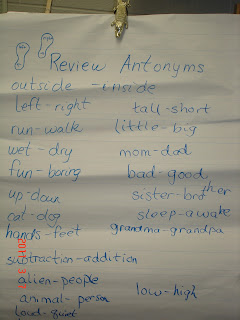 Review Antonyms
outside - inside
left - right
tall - short
run - walk
little - big
wet - dry
mom - dad
fun - boring
bad - good
up - down
sister - brother
cat - dog
sleep - awake
hands - feet
grandma - grandpa
subtraction - addition
alien - people
low - high
animal - person
loud - quiet